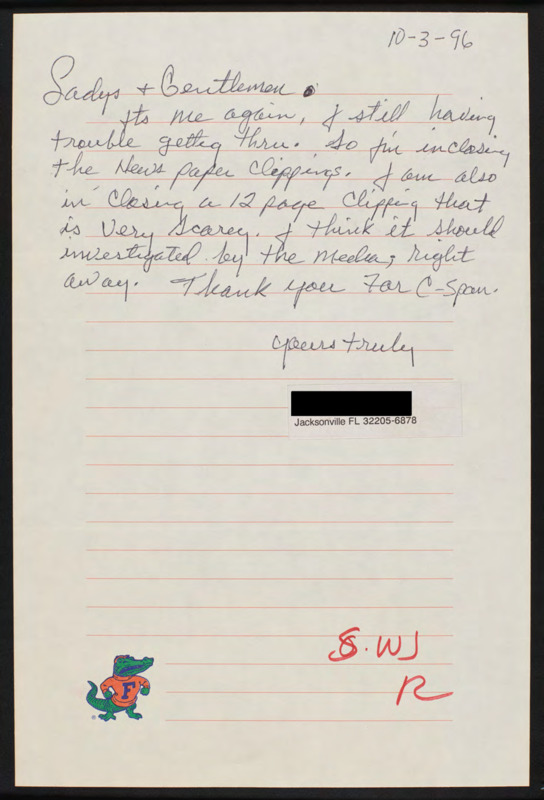 10-3-96
Ladys + Gentlemen.
Its me again, I still having
trouble gettig thru. So I'm inclosing
the News paper Clippings. I am also
in Closing a 12 page Clippig that
is Very Scarey. I think it should
investigated by the Media, right
away. Thank you For C-Span.
yours truly
Jacksonville FL 32205-6878
S. WJ
R
F